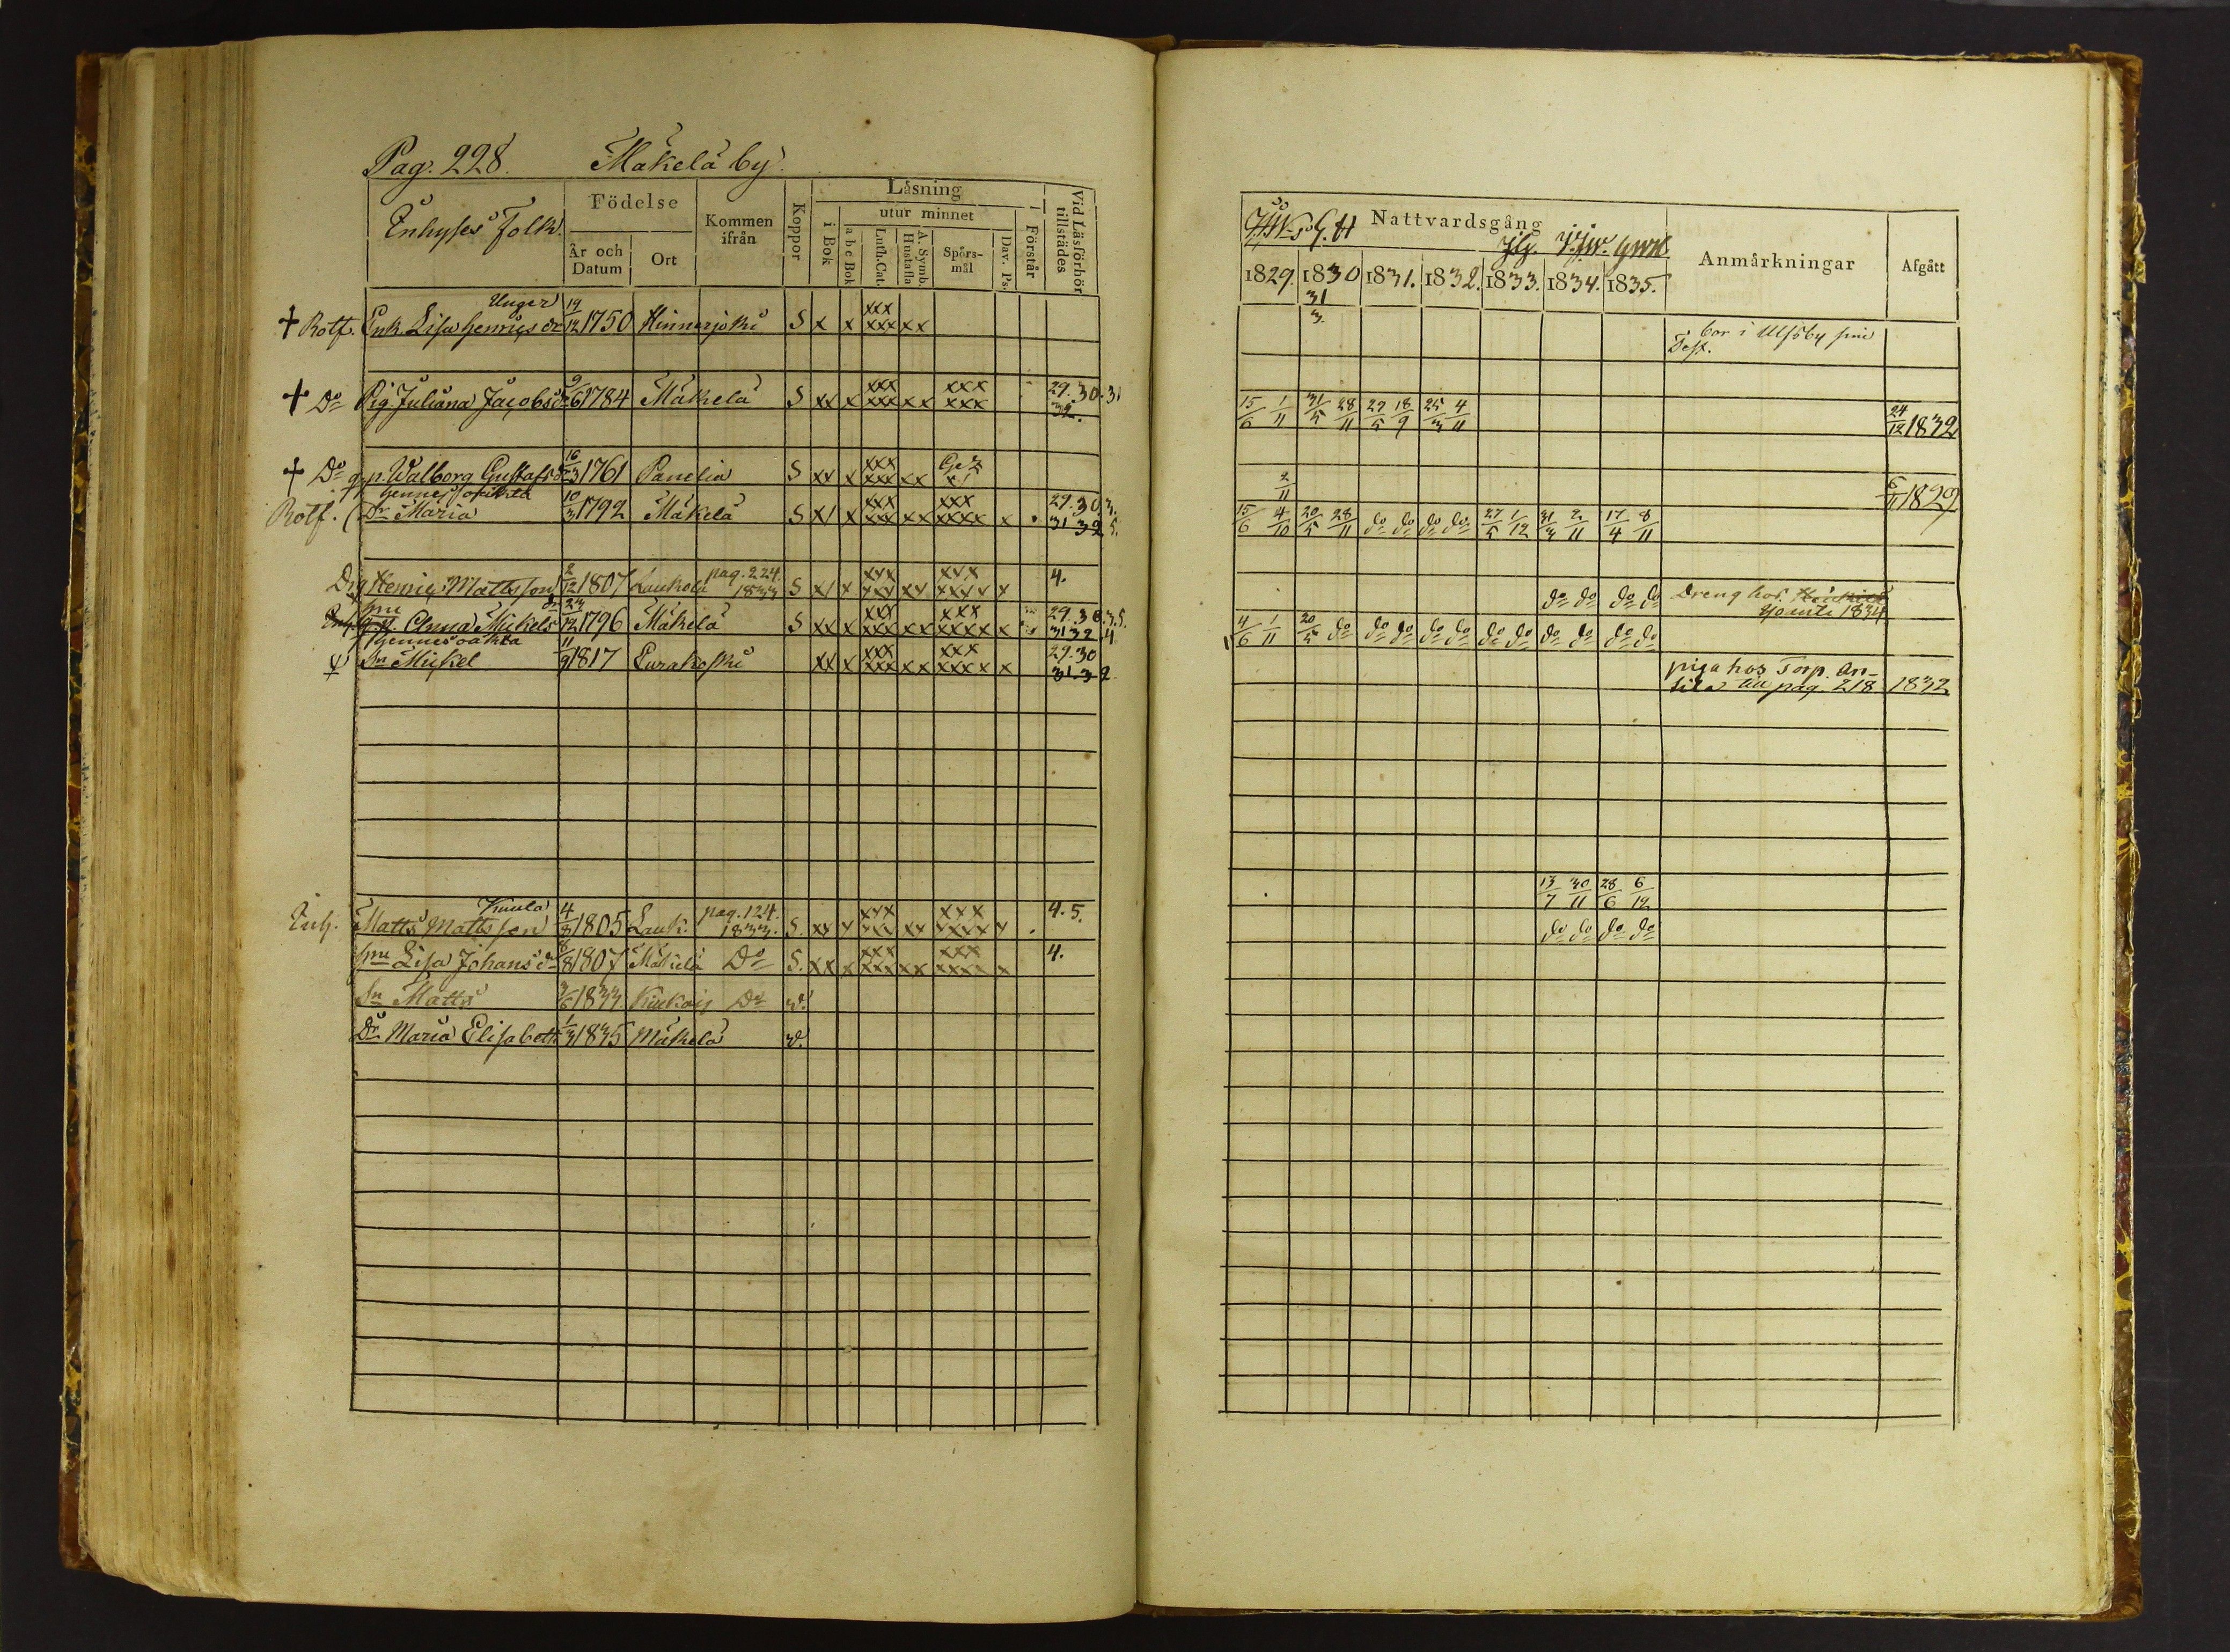 Pag. 228. Mäkelä by.
Inhyses Folk.
Födelse
År och Datum
Ort
Kommen ifrån
Koppor
Läsning
i Bok
utur minnet
a b c Bok
Luth. Cat.
A. Symb. Hustafla
Spörs-mål
Dav. Ps.
Förstår
Vid Läsförhör tillstädes
Unger
† Rotf. Enk. Lisa Henrics dr 19/12 1750 Hinnerjoki S x x xxx xxx xx
† Do Pig Juliana Jacobs dr 9/6 1784 Mäkelä S xx x xxx xxx xx xxx xxx 29. 30. 31 32.
† Do q. p. Walborg Gustafs dr 16/3 1761 Panelia S xx x xxx xxx xx
hennes oäkta
Rotf. Dr Maria 10/3 1792 Mäkelä S x/ x xxx xxx xx xxx xxxx x 29. 30 3. 31 32 5.
Drg Henric Mattsson 2/12 1807 Laukola pag. 224. 1833 S x/ x xxx xxx xx xxx xxxx x 4.
Inh. q. p. Anna Mickels dr 23/12 1796 Mäkelä S xx x xxx xxx xx xxx xxxx x 29. 30. 3. 5. 31 32 4.
hennes oäkta
Sn Mickel 11/9 1817 Eurakoski xx x xxx xxx xx xxx xxxx x 29. 30 31. 32
Kuula
Inh. Matts Mattsson 4/8 1805 Lauk. pag. 124. 1833. S. xx x xxx xxx xx xxx xxxx x 4. 5.
hu Lisa Johans dr 8/8 1807 Mäkelä Do S. xx x xxx xxx xx xxx xxxx x 4.
Sn Matts 3/6 1833 Kiukais Do v.
Dr Maria Elisabeth 1/3 1835 Mäkelä v.
Nattvardsgång
Anmärkningar
Afgått
1829. 1830 1831. 1832. 1833. 1834. 1835.
31
3.
bor i Ulfsby
15/6 1/11 31/5 28/11 29/5 18/9 25/3 4/11 24/12 1832
2/11 6/11 1829
15/6 4/10 20/5 28/11 do do do do 27/5 1/12 31/3 2/11 17/4 8/11
do do do do Dreng hos
1834
4/6 1/11 20/5 do do do do do do do do do do do
piga hos Torp. An-
tila till pag. 218 1832
13/7 30/11 28/6 6/12
do do do do